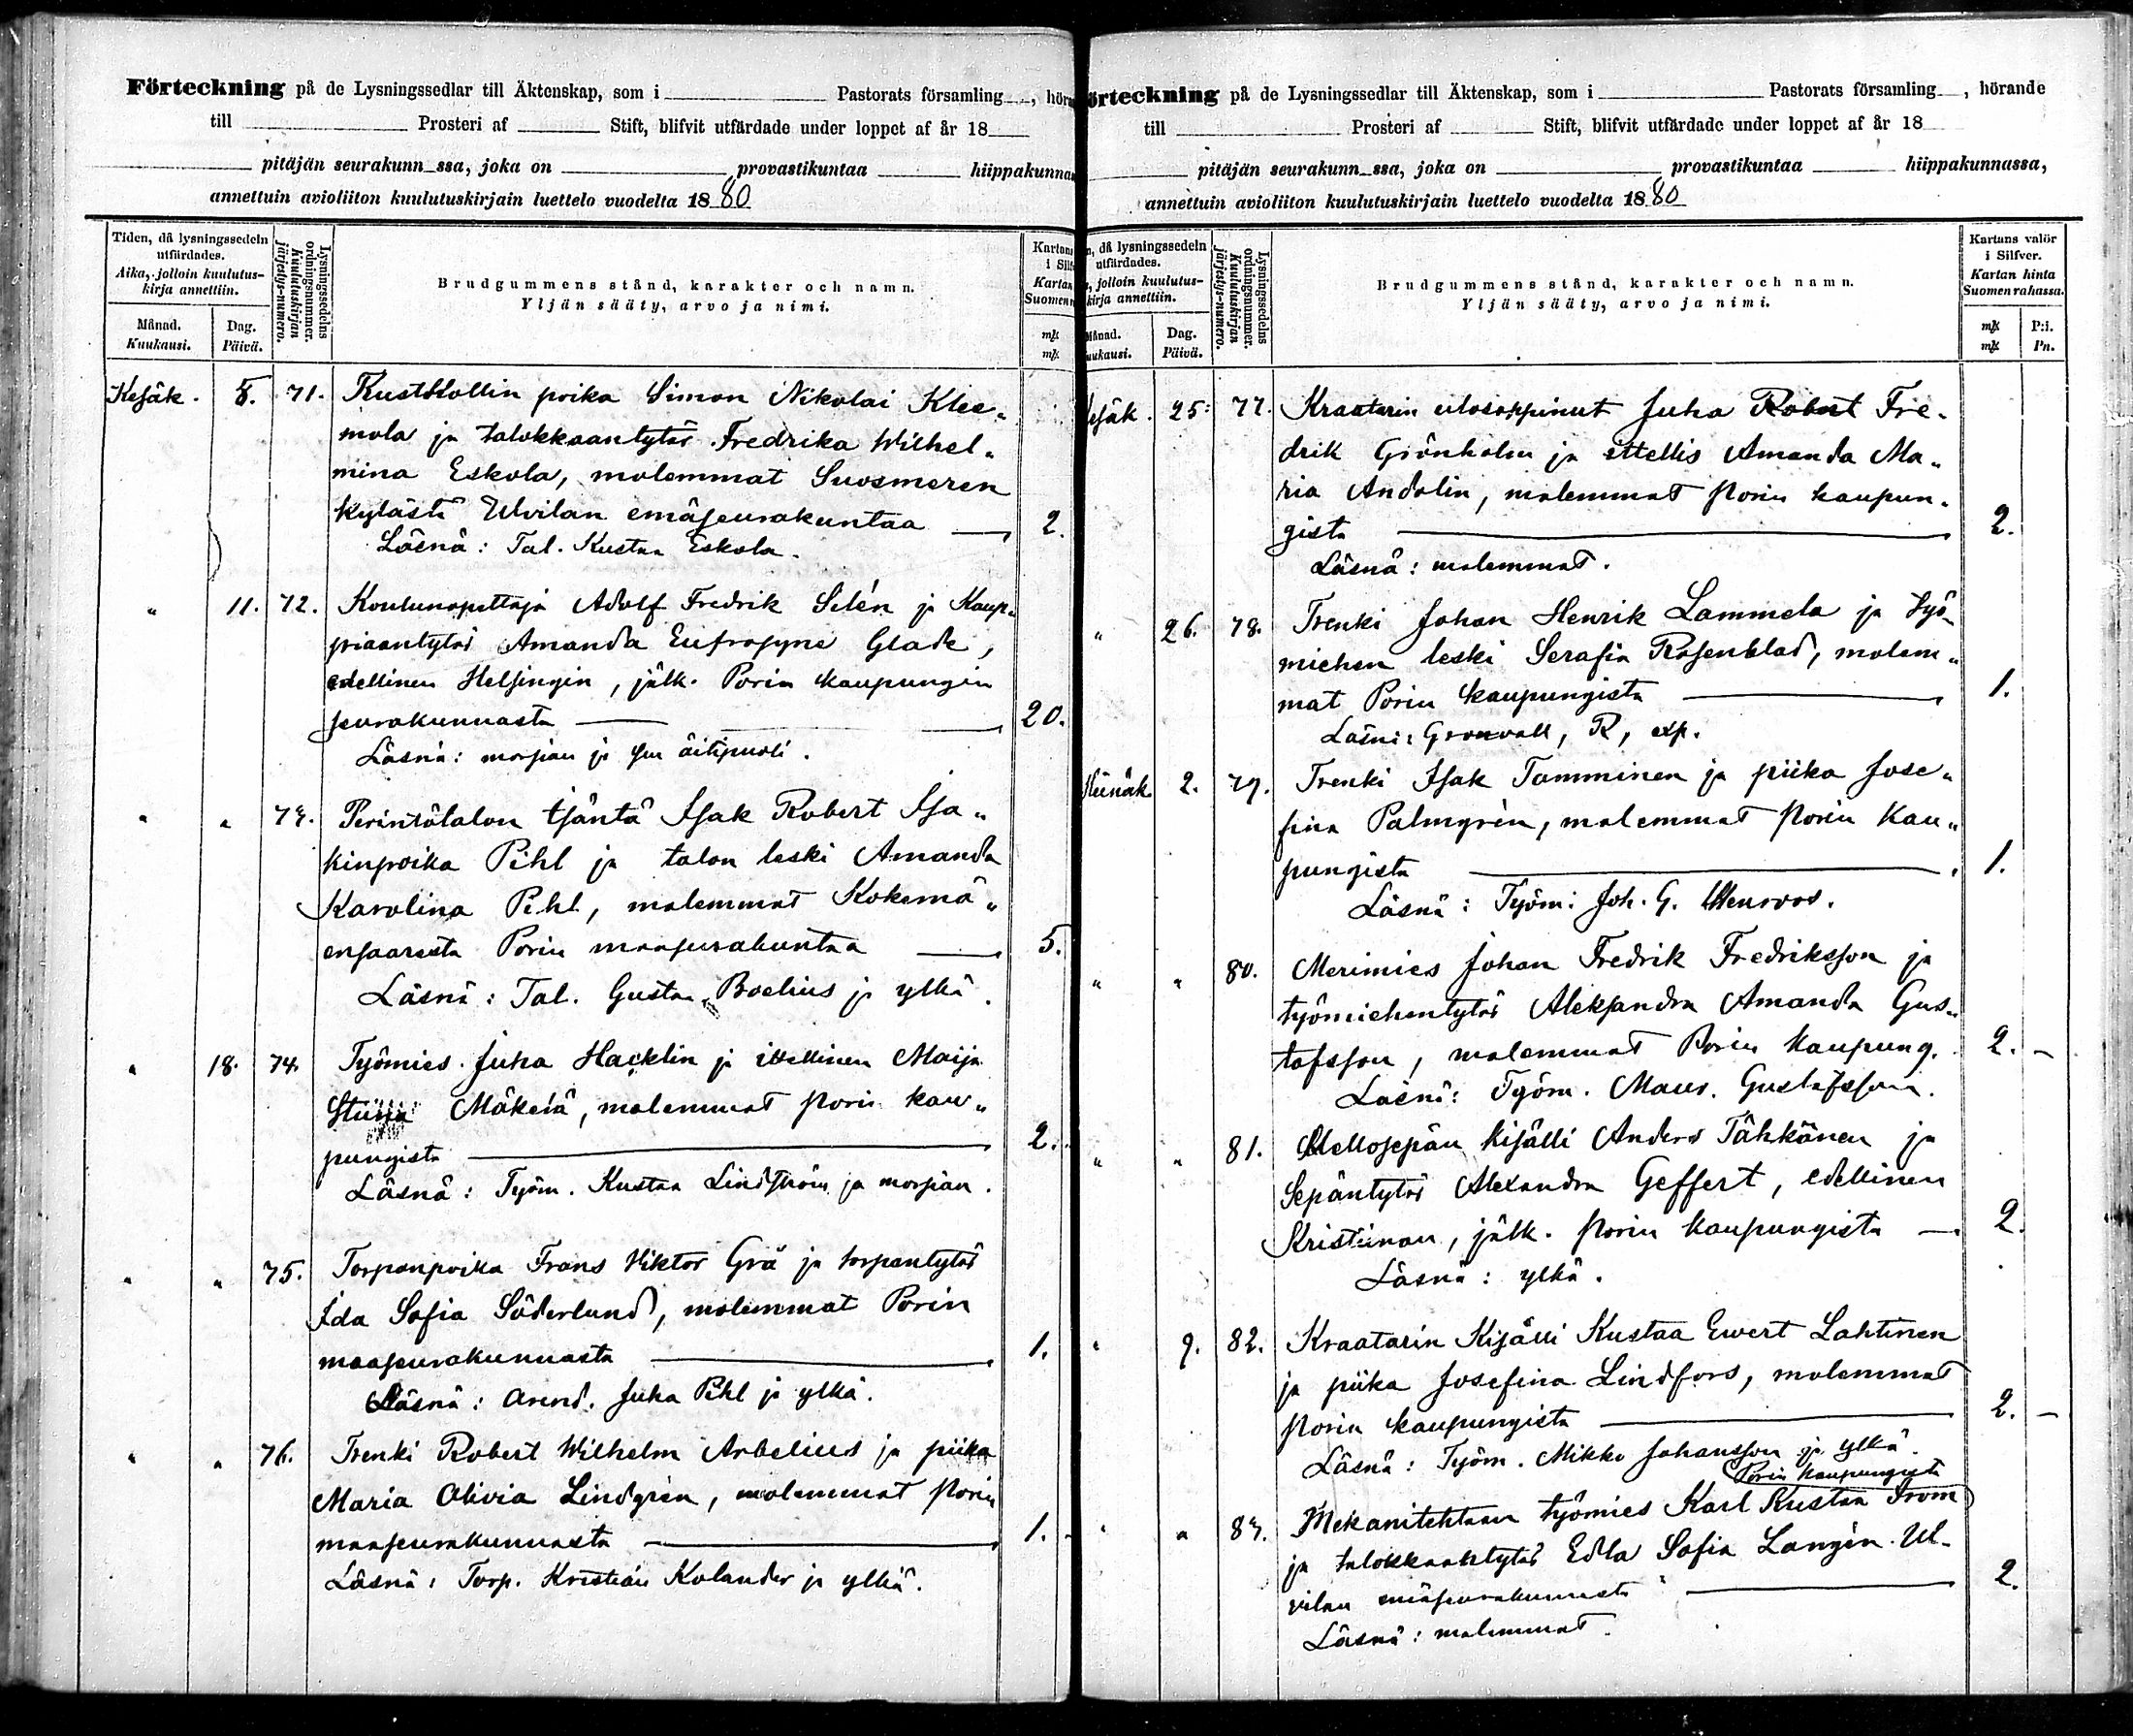 Förteckning på de Lysningssedlar till Äktenskap, som i Pastorats församling , hör
till Prosteri af Stift, blifvit utfärdade under loppet af år 18
pitäjän seurakunn ssa, joka on provastikuntaa hiippakunna
annettuin avioliiton kuulutuskirjain luettelo vuodelta 1880
Tiden, då lysningssedeln
utfärdades.
Aika, jolloin kuulutus-
kirja annettiin.
Månad.
Kuukausi.
Dag.
Päivä.
Lysningssedelns
ordningsnummer.
Kuulutuskirjan
järjestys-numero.
Brudgummens stånd, karakter och namn.
Yljän sääty, arvo ja nimi.
Kartans
i Silf
Kartan
Suomen
Kesäk. 8. 71. poika Simon Nikolai Kles-
mola ja talokkaantytär Fredrika Wilhel-
mina Eskola, molemmat Suosmeren
kylästä Ulvilan emäseurakuntaa — 2.
Läsnä: Tal. Kustaa Eskola.
" 11. 72. Koulunopettaja Adolf Fredrik Selén ja Kaup-
piaantytär Amanda Eufrosyne Glade,
edellinen Helsingin, jälk. Porin kaupungin
seurakunnasta — 20.
Läsnä: morsian ja sen äitipuoli.
" " 73. Perintötalon isäntä Isak Robert Isa-
kinpoika Pihl ja talon leski Amanda
Karolina Pihl, molemmat Kokemä-
ensaaresta Porin maaseurakuntaa — 5.
Läsnä: Tal. Gustaa Boelius ja ylkä.
" 18. 74. Työmies Juha Hacklin ja itellinen Maija
Stiina Mäkelä, molemmat Porin kau-
pungista — 2.
Läsnä: Työm. Kustaa Lindström ja morsian.
" " 75. Torpanpoika Frans Viktor Grä ja torpantytär
Ida Sofia Söderlund, molemmat Porin
maaseurakunnasta — 1.
Läsnä: Arend. Juha Pihl ja ylkä.
" " 76. Trenki Robert Wilhelm Arbelius ja piika
Maria Olivia Lindgrén, molemmat Porin
maaseurakunnasta — 1. -
Läsnä: Torp. Kristian Kolander ja ylkä.
örteckning på de Lysningssedlar till Äktenskap, som i Pastorats församling , hörande
till Prosteri af Stift, blifvit utfärdade under loppet af år 18
pitäjän seurakunn ssa, joka on provastikuntaa hiippakunnassa,
annettuin avioliiton kuulutuskirjain luettelo vuodelta 1880
n, då lysningssedeln
utfärdades.
jolloin kuulutus-
kirja annettiin.
Månad.
uukausi.
Dag.
Päivä.
Lysningssedelns
ordningsnummer.
Kuulutuskirjan
järjestys-numero.
Brudgummens stånd, karakter och namn.
Yljän sääty, arvo ja nimi.
Kartans valör
i Silfver.
Kartan hinta
Suomen rahassa.
mk P:i.
mk Pn.
Kesäk. 25. 77. Kraatarin ulosoppinut Juha Robert Fre-
drik Grönholm ja ittellis Amanda Ma-
ria Andolin, molemmat Porin kaupun-
gista — 2.
Läsnä: molemmat.
" 26. 78. Trenki Johan Henrik Lammela ja työ-
miehen leski Serafia Rosenblad, molem-
mat Porin kaupungista — 1.
Läsnä: Gronvall, R, exp.
Heinäk. 2. 79. Trenki Isak Tamminen ja piika Jose-
fina Palmgrén, molemmat Porin kau-
pungista — 1.
Läsnä: Työm. Joh. G.
" " 80. Merimies Johan Fredrik Fredriksson ja
työmiehentytär Aleksandra Amanda Gus-
tafsson, molemmat Porin kaupung. 2. -
Läsnä: Työm. Maur. Gustafsson.
" " 81. Kellosepän kisälli Anders Tähkänen ja
Sepäntytär Alexandra Geffert, edellinen
Kristiinan, jälk. Porin kaupungista — 2.
Läsnä: ylkä.
" 9. 82. Kraatarin Kisälli Kustaa Ewert Lahtinen
ja piika Josefina Lindfors, molemmat
Porin kaupungista — 2. -
Läsnä: Työm. Mikko Johansson ja ylkä.
Porin kaupungista
" " 83. Mekanitehtaan työmies Karl Kustaa From
ja talokkaantytär Edla Sofia Langén Ul-
vilan emäseurakunnasta — 2.
Läsnä: molemmat.